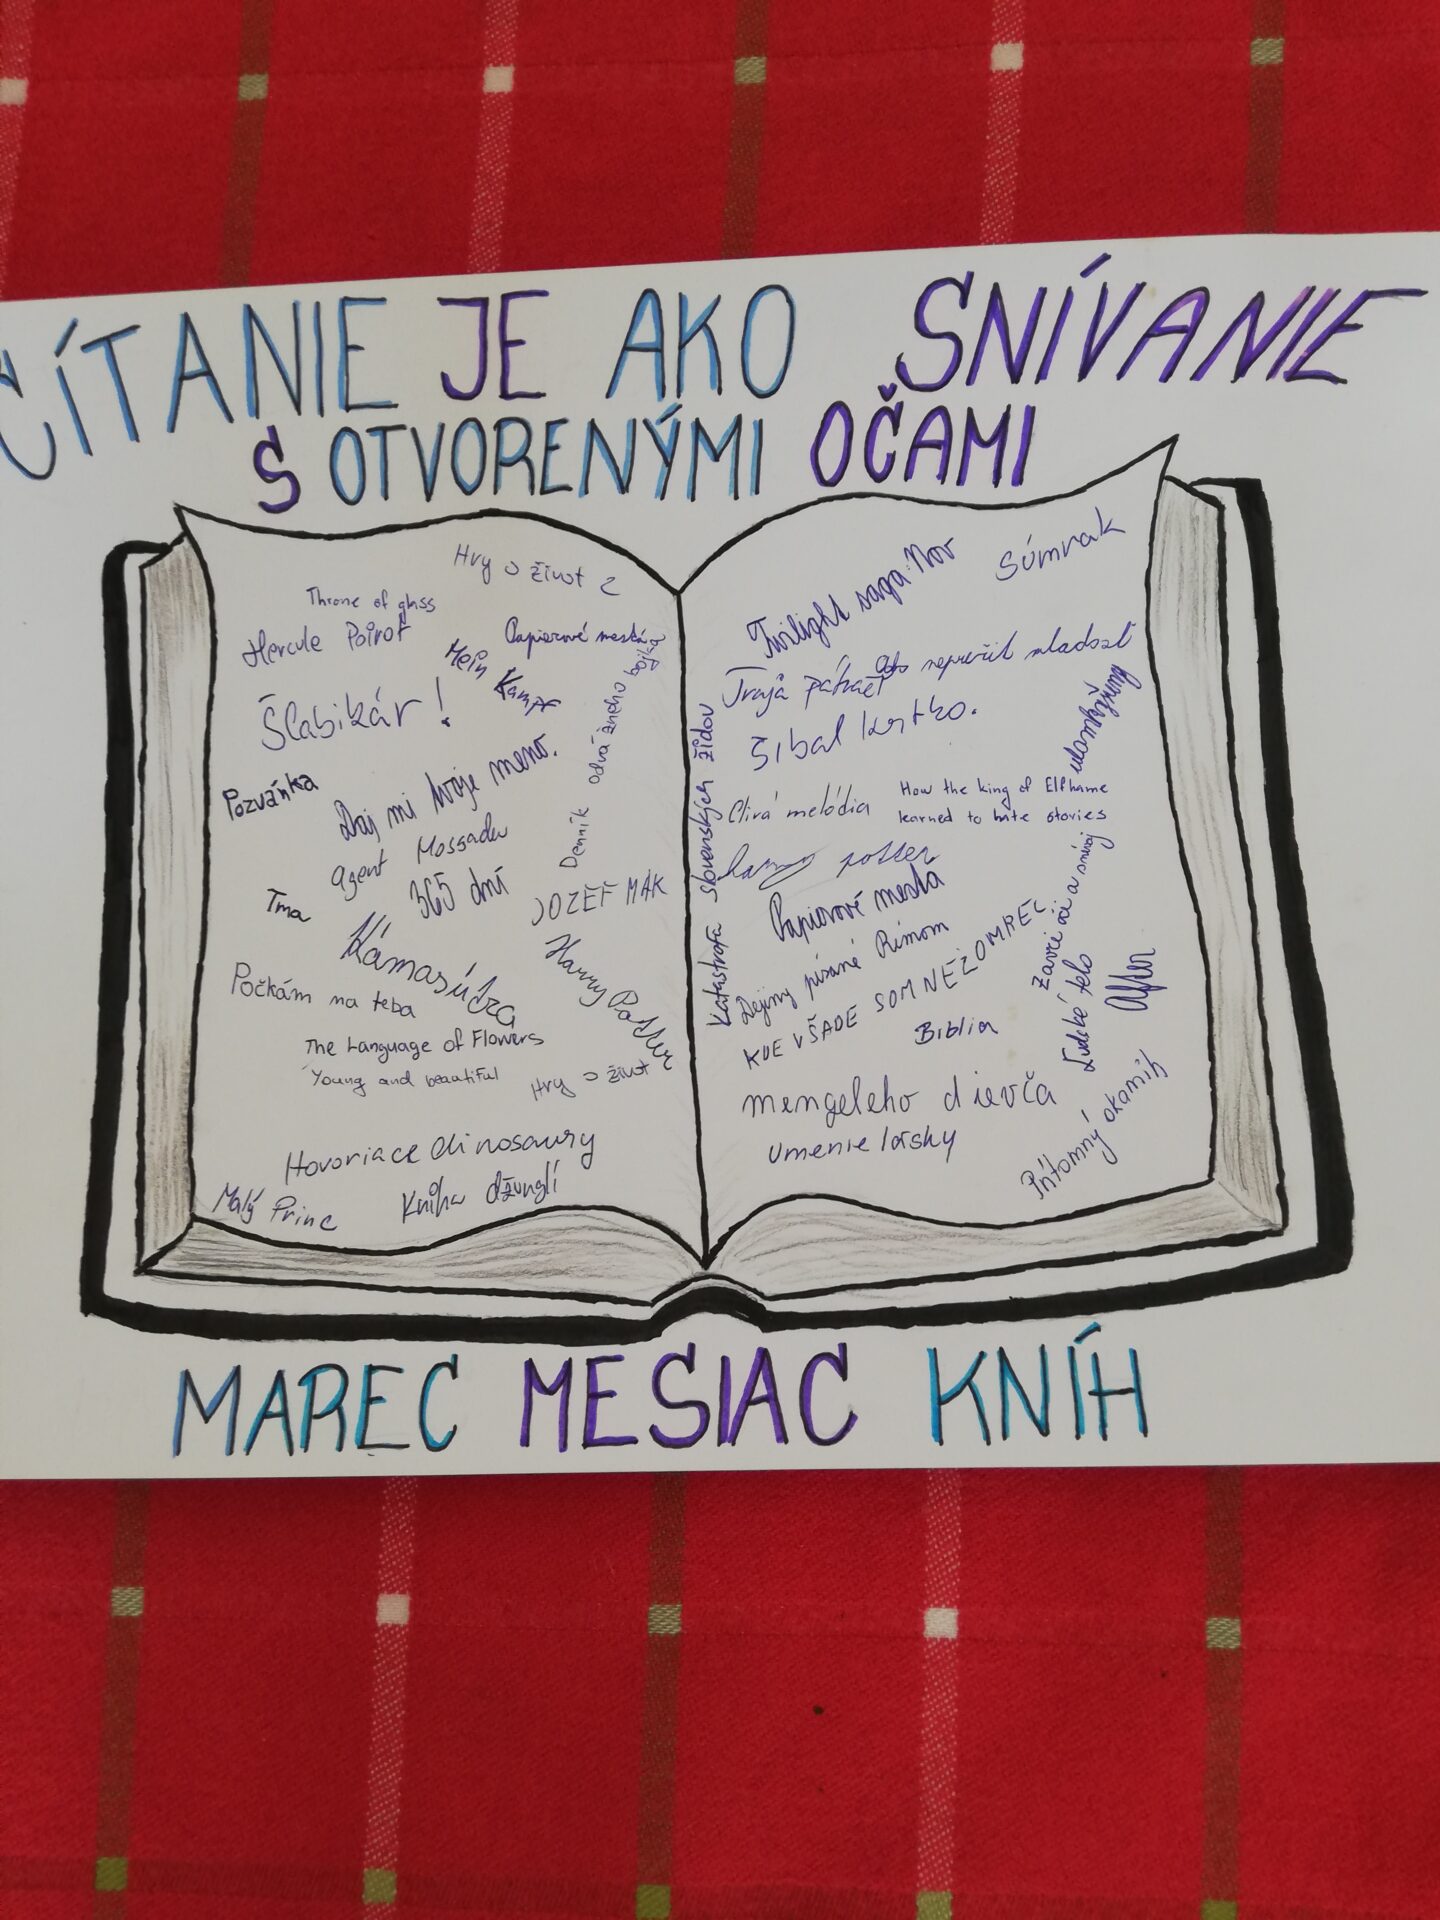 ČÍTANIE JE AKO SNÍVANIE
S OTVORENÝMI OČAMI
Hry o život 2
Throne of glass
Hercule Poirot
Papierové mestá
Mein
Kampf
Šlabikár!
Denník odvážneho bojka
Pozvánka
Daj mi tvoje meno.
agent Mossadu
365 dní
Tma
JOZEF MAK
Kámasútra
Harry Potter
Počkám na teba
The Language of Flowers
Young and beautiful
Hry o život
Hovoriace dinosaury
Malý Princ
Kniha džunglí
Twilight saga: Nov
Súmrak
Traja pátrači
Ako neprežiť mladosť
Šibal krtko.
Katastrofa slovenských židov
Clivá melódia
How the king of Elfhame
learned to hate stories
harry potter
Papierové mesta
Dejiny písané Rímom
KDE VŠADE SOM NEZOMREL
Zavri oči a snívaj
Ľudské telo
After
Biblia
mengeleho dievča
umenie lásky
Prítomný okamih
MAREC MESIAC KNÍH